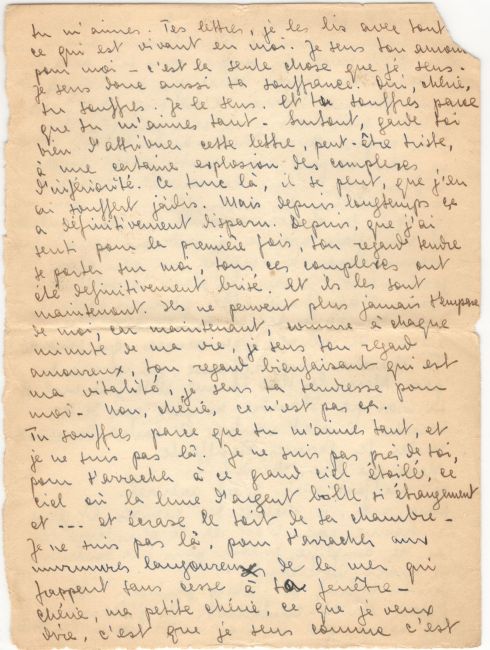 tu m'aimes. Tes lettres, je les lis avec tout
ce qui est vivant en moi. Je sens ton amour
pour moi - c'est la seule chose que je sens -
Je sens donc aussi ta souffrance. Oui, chérie,
tu souffres. Je le sens. Et tu souffres parce
que tu m'aimes tant - Surtout, garde toi
bien d'attribuer cette lettre, peut-être triste,
à une certaine explosion des complexes
d'infériorité. Ce truc là, il se peut, que j'en
ai souffert jadis. Mais depuis longtemps ça
a définitivement disparu. Depuis, que j'ai
senti pour la première fois, ton regard tendre
se porter sur moi, tous ces complexes ont
été definitivement brisé. Et ils les sont
maintenant. Ils ne peuvent plus jamais s'empare
de moi, car maintenant, comme à chaque
minute de ma vie, je sens ton regard
amoureux, ton regard bienfaisant qui est
ma vitalité, je sens ta tendresse pour
moi - Non, chérie, ce n'est pas ça.
Tu souffres parce que tu m'aimes tant, et
je ne suis pas là. Je ne suis pas près de toi,
pour t'arracher à ce grand ciel étoilé, ce
ciel où la lune d'argent brille si étrangement
et --- et écrase le toit de ta chambre -
Je ne suis pas là, pour t'arracher aux
murmures langoureux de la mer qui
frappent sans cesse à ta fenêtre -
chérie, ma petite chérie, ce que je veux
dire, c'est que je sens comme c'est